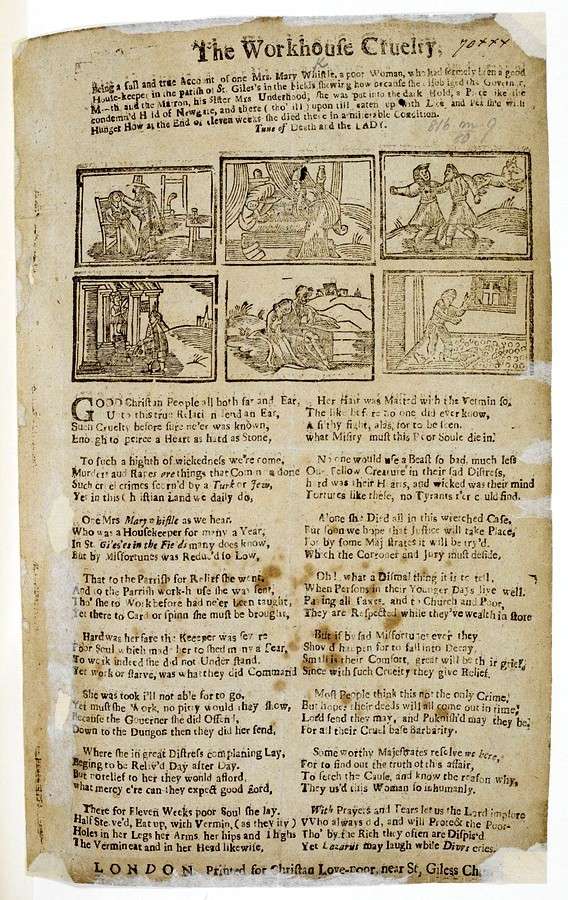 The Workhouse Cruelty,
Being a full and true Account of one Mrs. Mary Whistle, a poor Woman, who had formely been a good
House-keeper in the parish of St. Giles's in the Fields shewing how because she disobliged the Governor,
and the Matron, his Sister Mrs Underhood; she was put into the dark Hold, a Place like the
condemn'd Hold of Newgate, and there (tho' ill) upon till eaten up with Lice and
Hunger How at the End of eleven weeks she died there in a miserable Condition.
Tune of Death and the LADY.
GOOD Christian People all both far and Ear,
Unto this true Relation lend an Ear,
Such Cruelty before sure ne'er was known,
Enough to peirce a Heart as hard as Stone,
To such a highth of wickedness we're come,
Murders and Rapes are things that Common done
Such cruel crimes scorn'd by a Turk or Jew,
Yet in this Christian Land we daily do,
One Mrs Mary whistle as we hear.
Who was a Housekeeper for many a Year,
In St. Giles'es in the Fields many does know,
But by Misfortunes was Reduc'd to Low,
That to the Parrish for Relief she went,
And to the Parrish work-house she was sent,
Tho' she to Work before had ne'er been taught,
Yet there to Card or spinn she must be brought,
Hard was her fare the Keeper was severe
Poor Soul which made her to shed many a Tear,
To work indeed she did not Under stand.
Yet work or starve, was what they did Command
She was took ill not able for to go,
Yet must she Work, no pitty would they show,
Because the Gouerner she did Offend,
Down to the Dungon then they did her send,
Where she in great Distress complaning Lay,
Beging to be Reliv'd Day after Day.
But no relief to her they would afford,
what mercy e're can they expect good Lord,
There for Eleven Weeks poor Soul she lay.
Half Starved, Eat up, with Vermin, (as they say)
Holes in her Legs her Arms her hips and Thighs
The Vermin eat and in her Head likewise,
Her Hair was Matted with the Vermin so,
The like before no one did ever know,
A filthy sight, alas, for to be seen.
what Misery must this Poor Soule die in!
No one would use a Beast so bad, much less
Our Fellow Creature in their sad Distress,
hard was their Hearts, and wicked was their mind
Tortures like these, no Tyrants e'er could find.
Alone she Died all in this wretched Case,
But soon we hope that Justice will take Place,
For by some Majistrates it will be try'd.
Which the Corgoner and Jury must deside,
Oh! what a Dismal thing it is to tell,
When Persons in their Younger Days live well.
Paying all Taxes, and to Church and Poor,
They are Respected while they've wealth in store
But if by sad Misfortunes ever they
Shou'd happen for to fall into Decay,
Small is their Comfort, great will be their grief,
Since with such Cruelty they give Relief.
Most People think this not the only Crime,
But hopes their deeds will all come out in time;
Lord send they may, and Punish'd may they be,
For all their Cruel base Barbarity.
Some worthy Majestrates resolve we hear,
For to find out the truth of this affair,
To serch the Cause, and know the reason why,
They us'd this Woman so inhumanly.
With Prayers and Tears let us the Lord implore
VVho always did, and will Protect the Poor
Tho' by the Rich they often are Dispis'd
Yet Lazarus may laugh while Dives cries.
LONDON Printed for Christian Love-poor, near St, Giless Ch